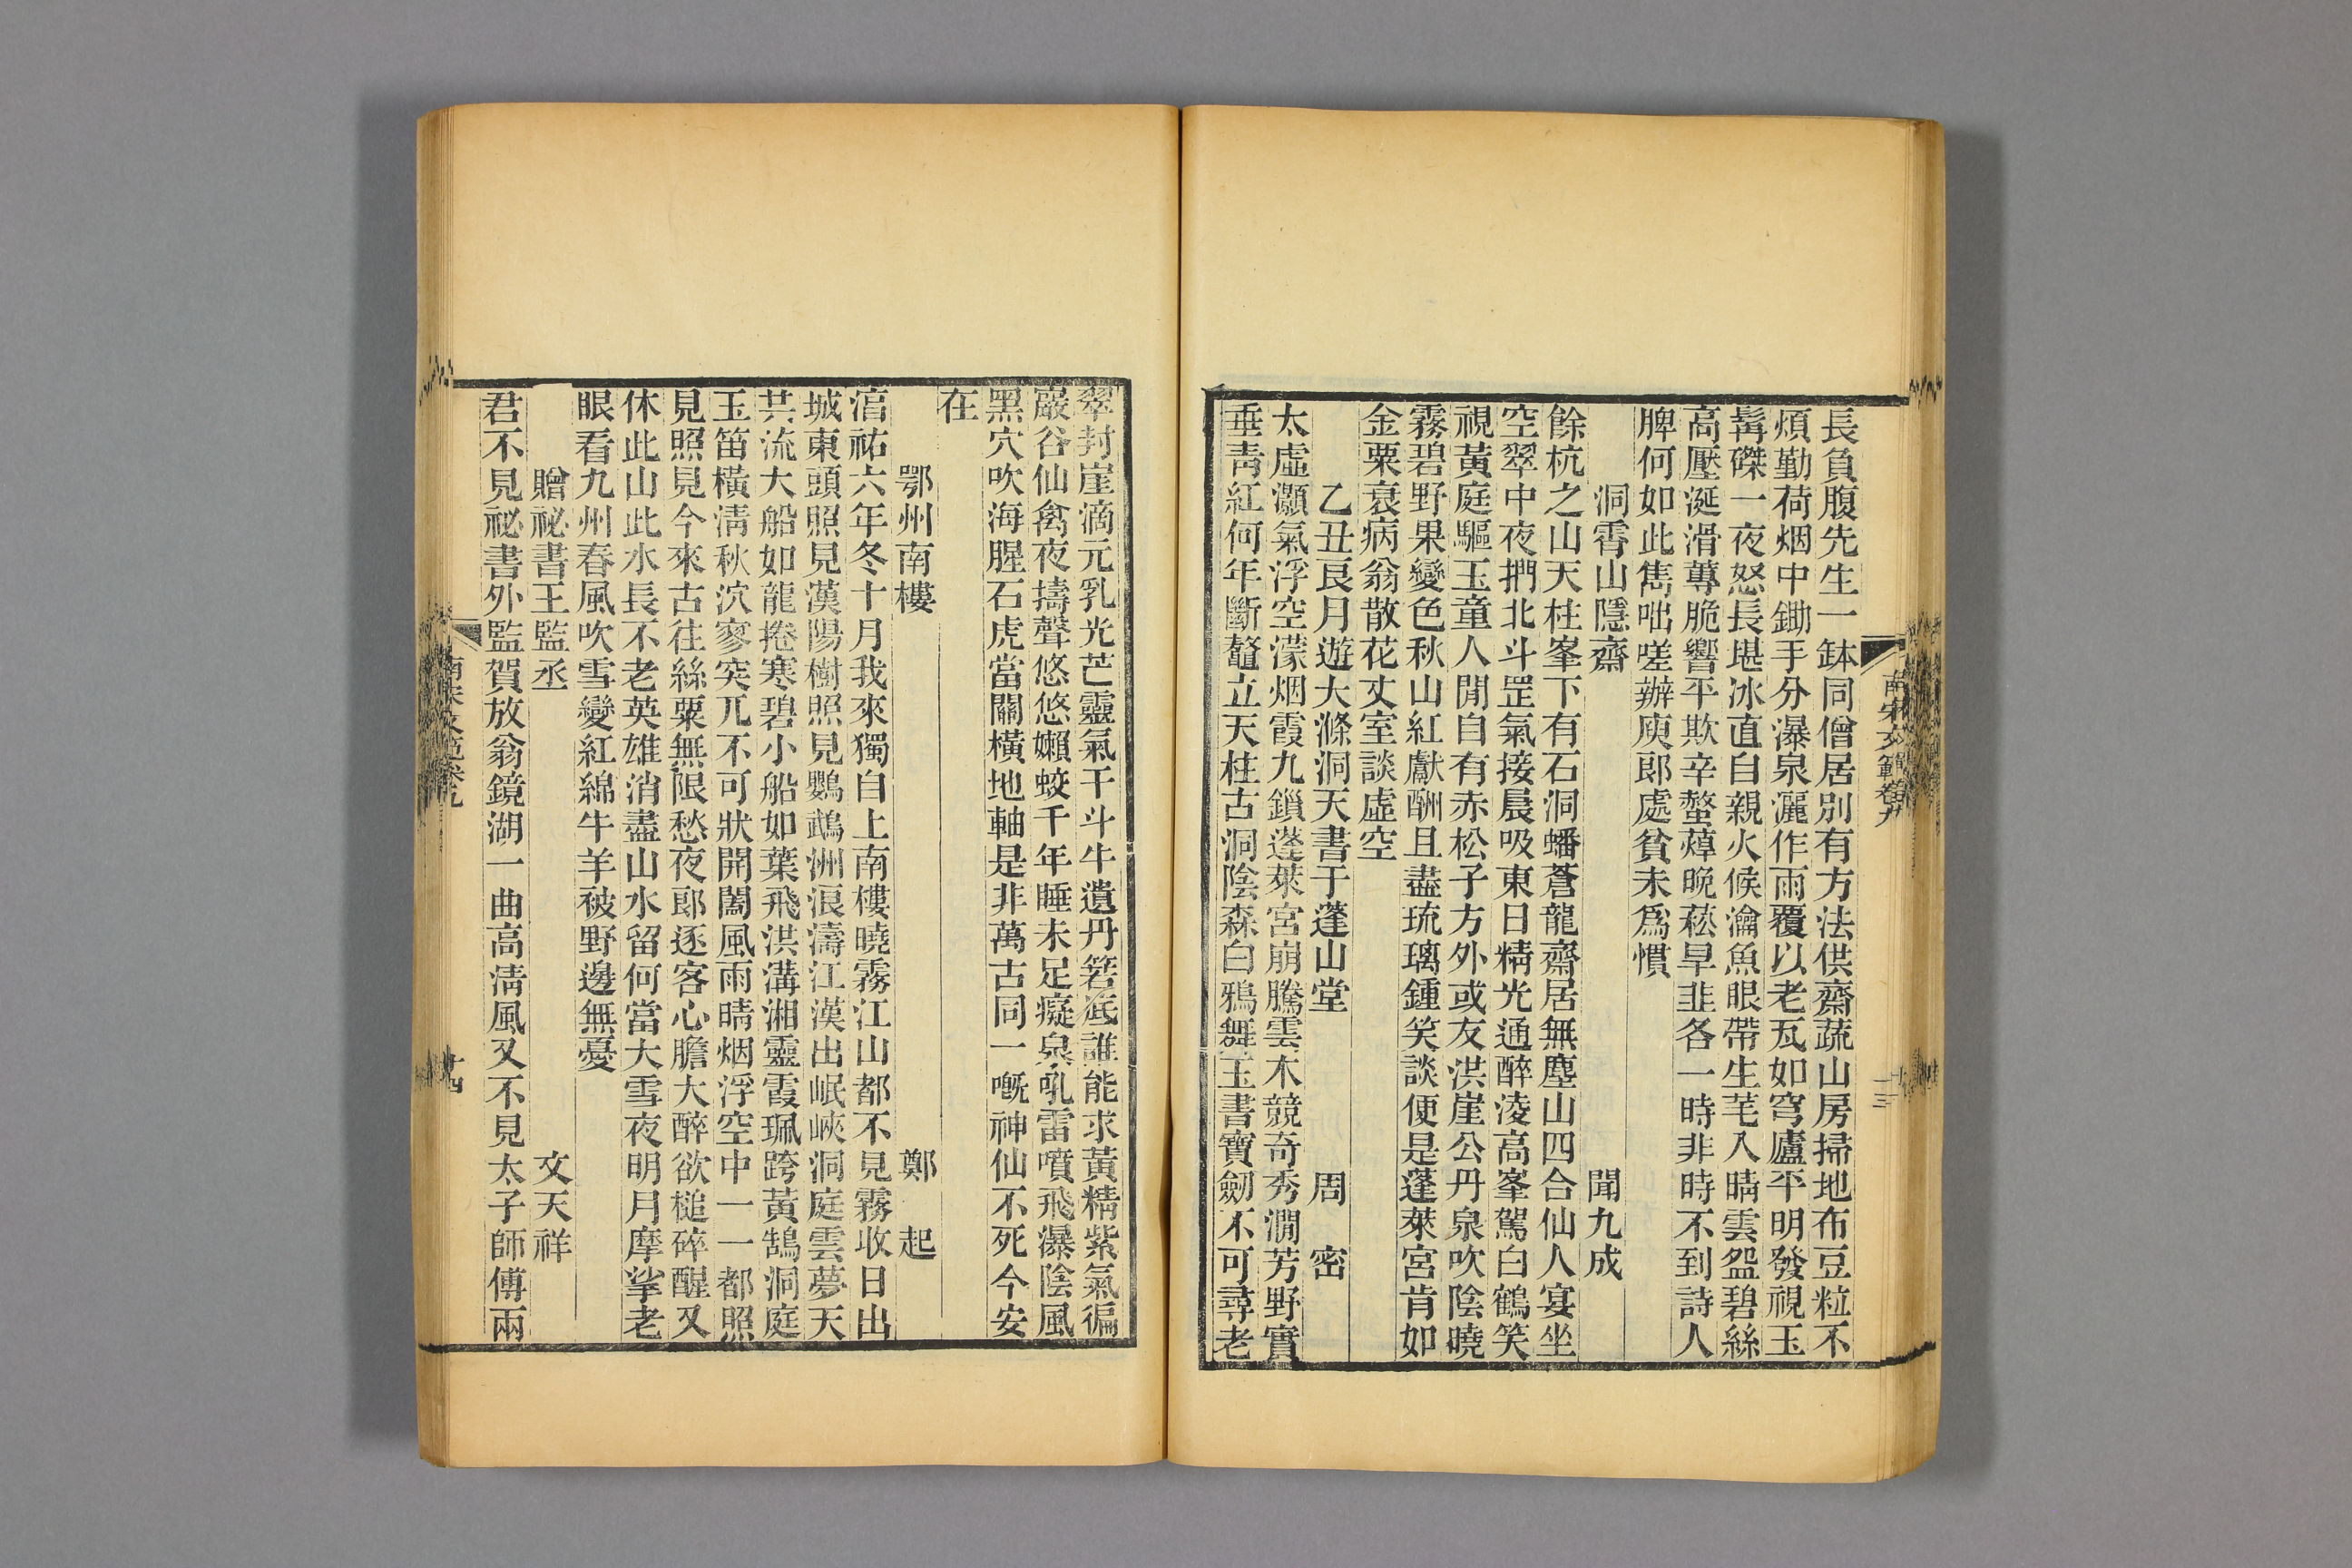 長負腹先生一鉢同僧居別有方法供齋蔬山房掃地布豆粒不
煩勤荷烟中鋤手分瀑泉灑作雨覆以老瓦如穹廬平明發視玉
髯磔一夜怒長堪冰直自親火候瀹魚眼帶生芼入晴雲盌碧絲
高壓涎滑蓴脆響平欺辛螫薧晚菘早韭各一時非時不到詩人
脾何如此雋咄嗟辦庾郎處貧未爲慣
洞霄山隱齋 聞九成
餘杭之山天柱峯下有石洞蟠蒼龍齋居無塵山四合仙人宴坐
空翠中夜捫北斗罡氣接晨吸東日精光通醉淩高峯駕白鶴笑
視黃庭驅玉童人閒自有赤松子方外或友洪崖公丹泉吹陰曉
霧碧野果變色秋山紅獻酬且盡琉璃鍾笑談便是蓬萊宮肯如
金粟衰病翁散花丈室談虛空
乙丑良月遊大滌洞天書于蓬山堂 周密
太虛灝氣浮空濛烟霞九鎖蓬萊宮崩騰雲木競奇秀澗芳野實
垂靑紅何年斷鼇立天柱古洞陰森白鴉舞玉書寶劒不可尋老
南宋文範卷九
十三
翠封崖滴元乳光芒靈氣干斗牛遺丹箬底誰能求黃精紫氣徧
巖谷仙禽夜擣聲悠悠嬾蛟千年睡未足癡泉吼雷噴飛瀑陰風
黑穴吹海腥石虎當關橫地軸是非萬古同一嘅神仙不死今安
在
鄂州南樓 鄭起
湻祐六年冬十月我來獨自上南樓曉霧江山都不見霧收日出
城東頭照見漢陽樹照見鸚鵡洲浪濤江漢出岷峽洞庭雲夢天
共流大船如龍捲寒碧小船如葉飛洪溝湘靈霞珮跨黃鵠洞庭
玉笛橫淸秋泬寥突兀不可狀開闔風雨晴烟浮空中一一都照
見照見今來古往絲粟無限愁夜郎逐客心膽大醉欲槌碎醒又
休此山此水長不老英雄消盡山水留何當大雪夜明月摩挲老
眼看九州春風吹雪變紅綿牛羊被野邊無憂
贈祕書王監丞 文天祥
君不見祕書外監賀放翁鏡湖一曲高淸風又不見太子師傅兩
南宋文範卷九
十四